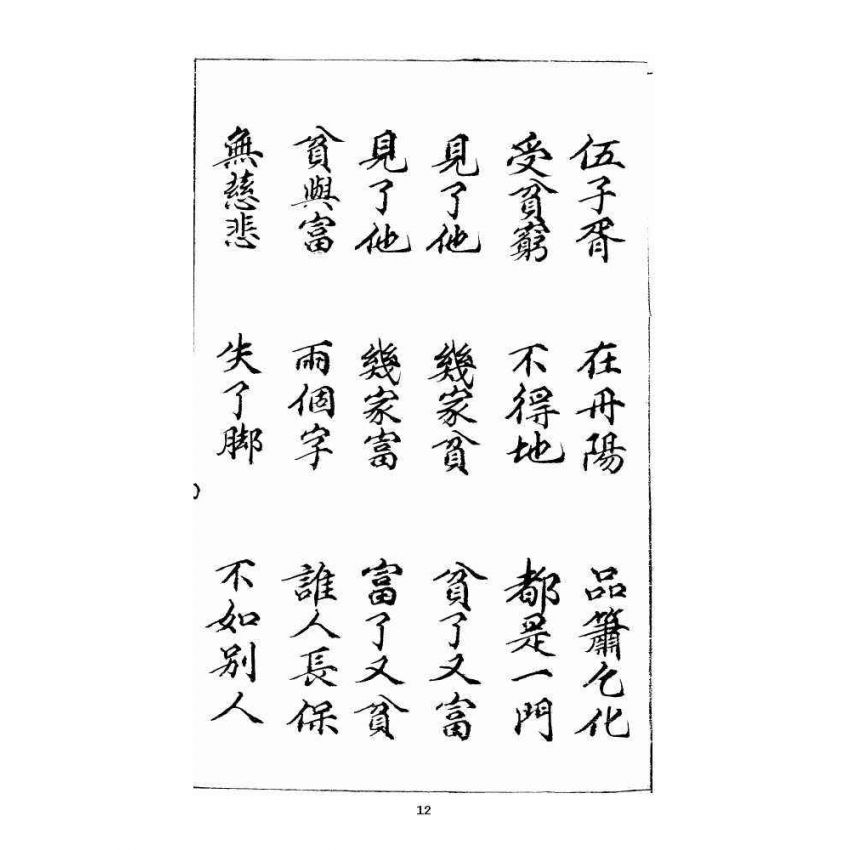 伍子胥 在丹陽 品簫乞化
受貧窮 不得地 都是一門
見了他 幾家貧 貧了又富
見了他 幾家富 富了又貧
貧與富 兩個字 誰人長保
無慈悲 失了脚 不如别人
12